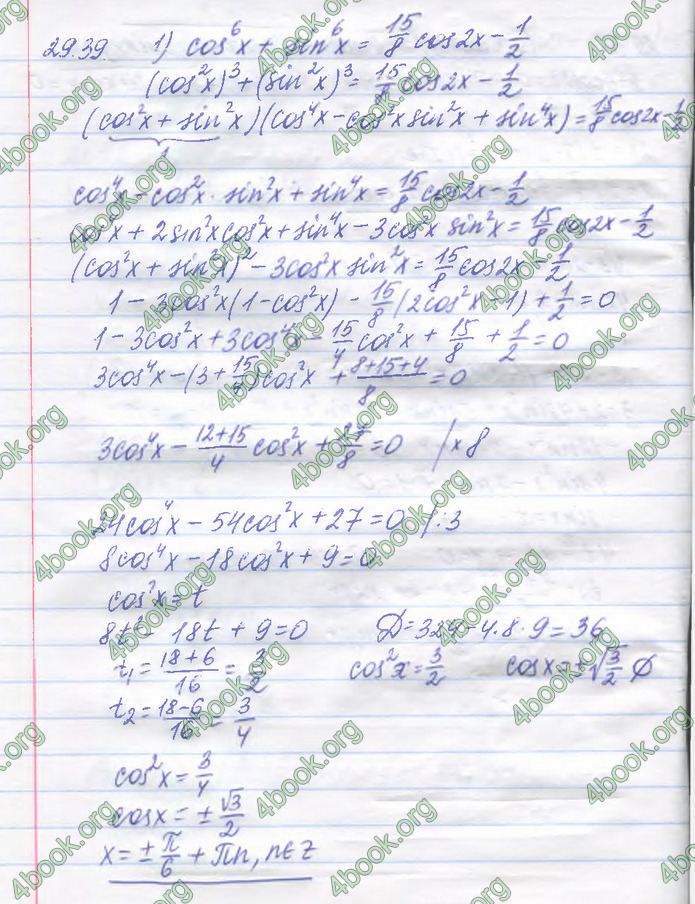 29.39. 1) cos⁶x + sin⁶x = 15/8 cos2x − 1/2
(cos²x)³ + (sin²x)³ = 15/8 cos2x − 1/2
(cos²x + sin²x)(cos⁴x − cos²x sin²x + sin⁴x) = 15/8 cos2x − 1/2
1
cos⁴x − cos²x · sin²x + sin⁴x = 15/8 cos2x − 1/2
cos⁴x + 2sin²x cos²x + sin⁴x − 3cos²x sin²x = 15/8 cos2x − 1/2
(cos²x + sin²x)² − 3cos²x sin²x = 15/8 cos2x − 1/2
1 − 3cos²x(1 − cos²x) − 15/8 (2cos²x − 1) + 1/2 = 0
1 − 3cos²x + 3cos⁴x − 15/4 cos²x + 15/8 + 1/2 = 0
3cos⁴x − (3 + 15/4)cos²x + (8+15+4)/8 = 0
3cos⁴x − (12+15)/4 cos²x + 27/8 = 0 / × 8
24cos⁴x − 54cos²x + 27 = 0 / : 3
8cos⁴x − 18cos²x + 9 = 0
cos²x = t
8t² − 18t + 9 = 0 D = 324 − 4 · 8 · 9 = 36
t₁ = (18+6)/16 = 3/2 cos²x = 3/2 cosx = ±√(3/2) ∅
t₂ = (18−6)/16 = 3/4
cos²x = 3/4
cosx = ± √3/2
x = ± π/6 + πn, n ∈ Z
4book.org